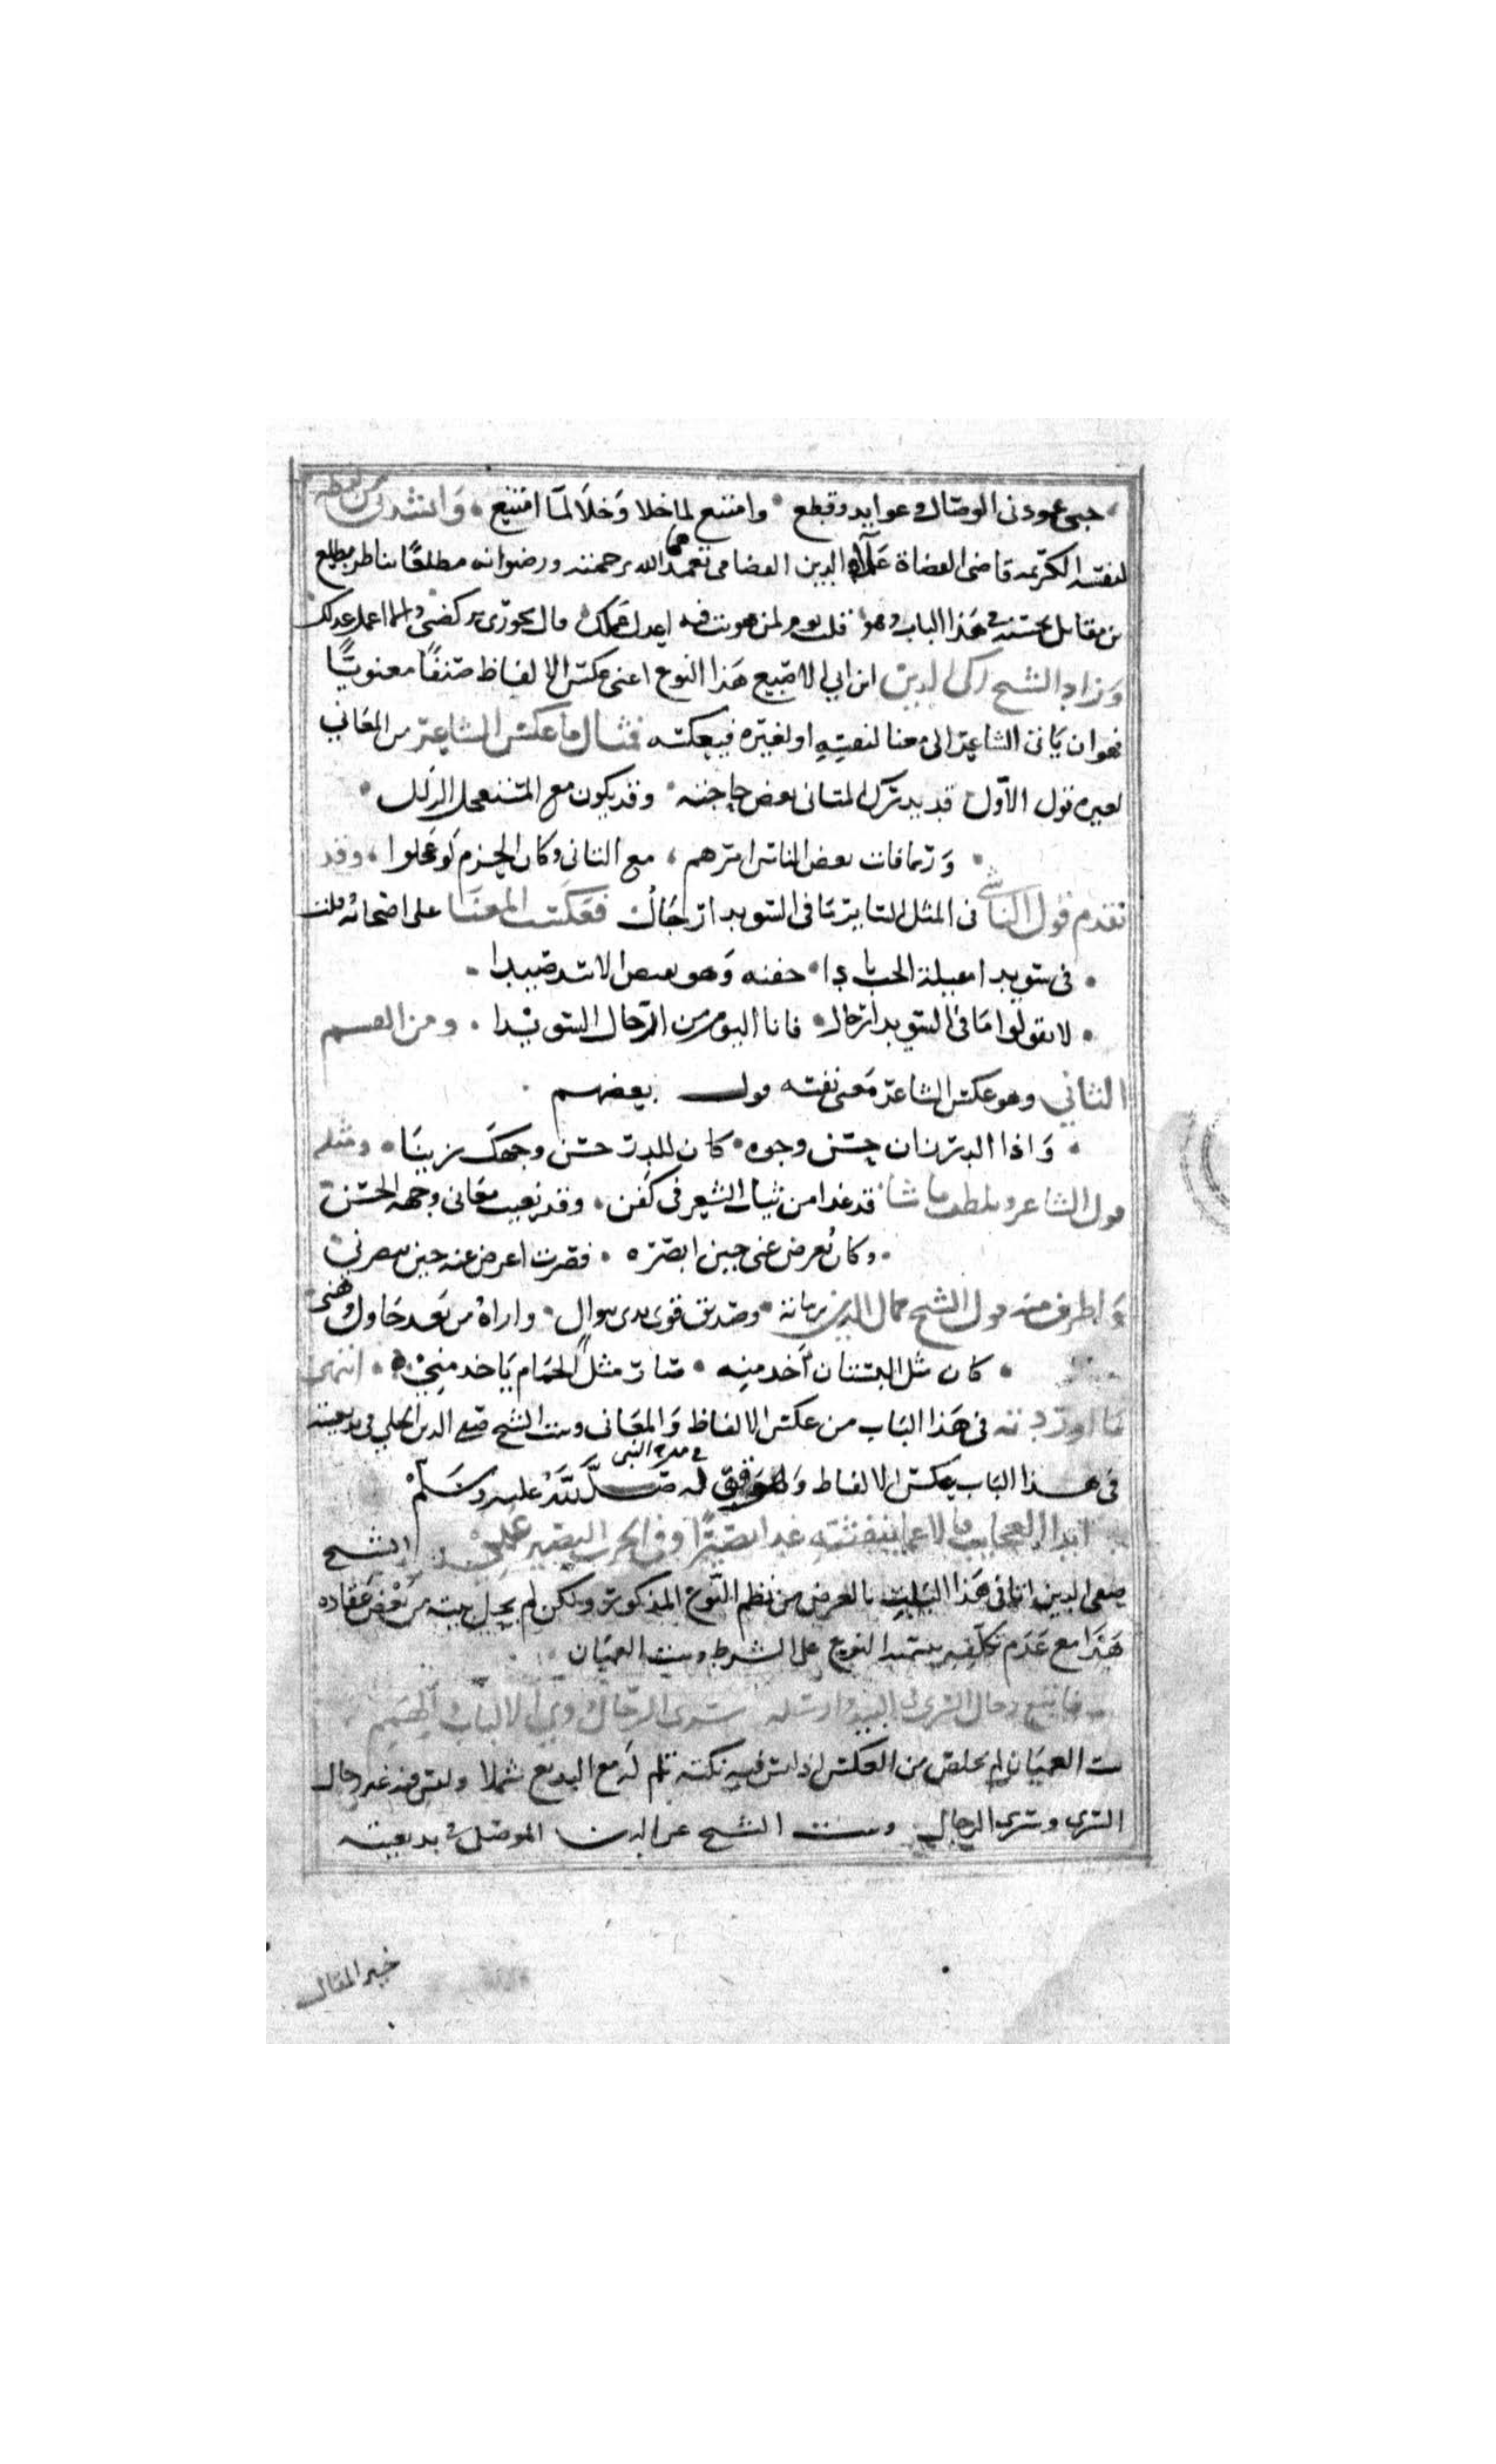 حبي عودني الوصال وعوايده قطع • وامتنع لما خلا وَخلا لما امتنع • وَانشدني من لفظه
لنفسه الكريمه قاضي القضاة علاء الدين القضامي تغمده الله برحمته ورضوانه مطلقا يناظر مطلع
بن مقابل بحسنه في هذا الباب وهو قلت يوم لمن هويت فيه اعدل عملك قال بجوري تركضي وانما اعمل عدلك
وَزاد الشيخ زكي الدين ابن ابي الاصبع هَذا النوع اعني عكس الالفاظ صنفًا معنويًّا
فهو ان يَاتي الشاعر الى معنا لنفسِهِ او لغيره فيعكسه فمثال ما عكس الشاعر من المعَاني
لغيره قول الاوّل قد يدرك المتاني بعض حاجته • وقد يكون مع المستعجل الزلل •
• وَربما فات بعض الناس امرهم • مع التاني وكان الحزم لَو عَجلوا • وقد
تقدم قول الناس في المثل الساير مَا في السويدا رجَال فعَكست المعنَا على اصحابه قلت
• في سويدا مقيلة الحب نادا • جفنه وَهو يقنص الاسد صيدا •
• لا تقولوا مَا في السويدا رجال • فانا اليوم من الرجال السويدا • ومن القسم
الثاني وهو عكس الشاعر مَعنى نفسه قول بعضهم •
• وَاذا الدر زان حسن وجوه • كان للدر حسن وجهك زينَا • ومثله
قول الشاعر وتلطف ما شا قد غدا من ثياب الشعر في كفن • وقد تعيب معَاني وجهه الحسن
• وكان يُعرض عني حين ابصره • فصرت اعرض عنه حين يبصرني
وَاظرف منه قول الشيخ جمال الدين نباتة • وصديق قوى يدي بنوال • واراه من بَعد حَاول وهني
• كان مثل البستنان اَخد منه • صَار مثل الحمَام يَاخد مني • انتهى
مَا اوردته في هَذا البَاب من عكس الالفاظ وَالمعَاني وبيت الشيخ صفي الدين الحلي في بديعيته
في هذا البَاب بعكس الالفاظ وَهو قوله في مدح النبي صَلَّى اللَّهُ عليه وسَلمْ
ابدا العجايب فالاعما بنفثته غدا بصيرًا وفي الحرب البصير عَمِي الشيخ
صفي الدين اتا في هَذا البَيت بالغرض من نظم النّوع المذكور ولكن لم يخل بيته من بَعض عقاده
هَذا مع عَدَم تكلفه بتسمية النوع على الشرط وبيت العميَان
فاتبع رجال السرى في البيد وارسله سرى الرجال ذوي الالباب والهمم
بيت العميَان لم يخلص من العكس اذ ليس فيه نكتة تلم له مع البديع شملا وليس فيه غير رجال
السرى وسرى الرجال وبيت الشيخ عز الدين الموصلي في بديعيته
خير المقال